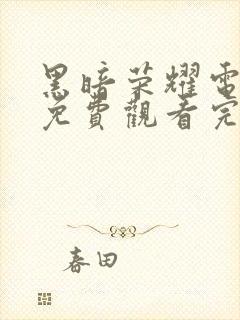 黑暗荣耀電
免費觀看完
春田